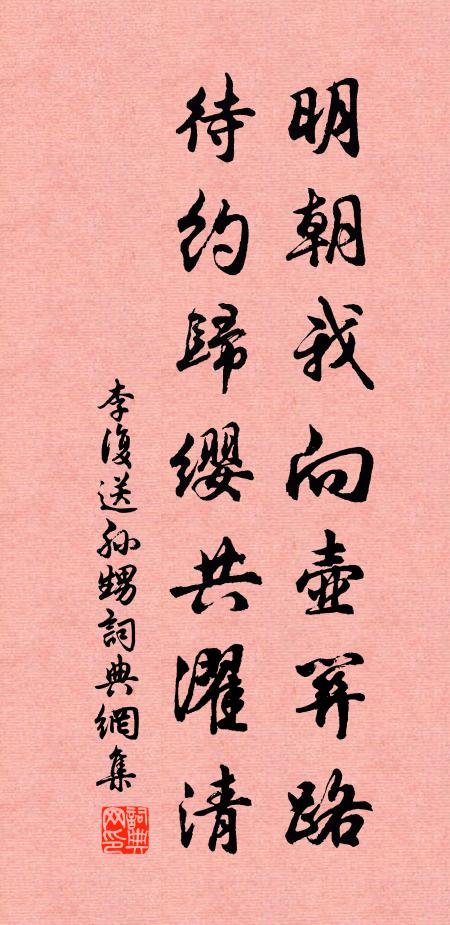 明朝我向壺關路
待約歸纓共濯清
李復送孫甥詞典網集
詞典网印